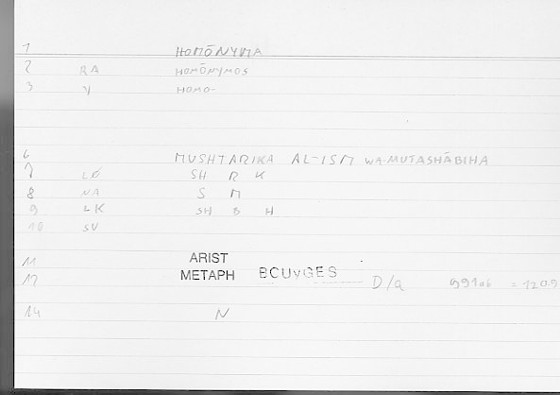 1 HOMŌNYMA
2 RA HOMŌNYMOS
3 V HOMO-
6 MUSHTARIKA AL-ISM WA-MUTASHĀBIHA
7 LO SH R K
8 NA S M
9 LK SH B H
10 SV
11 ARIST
METAPH BOUYGES
D/a 991a6 = 120.9
14 N